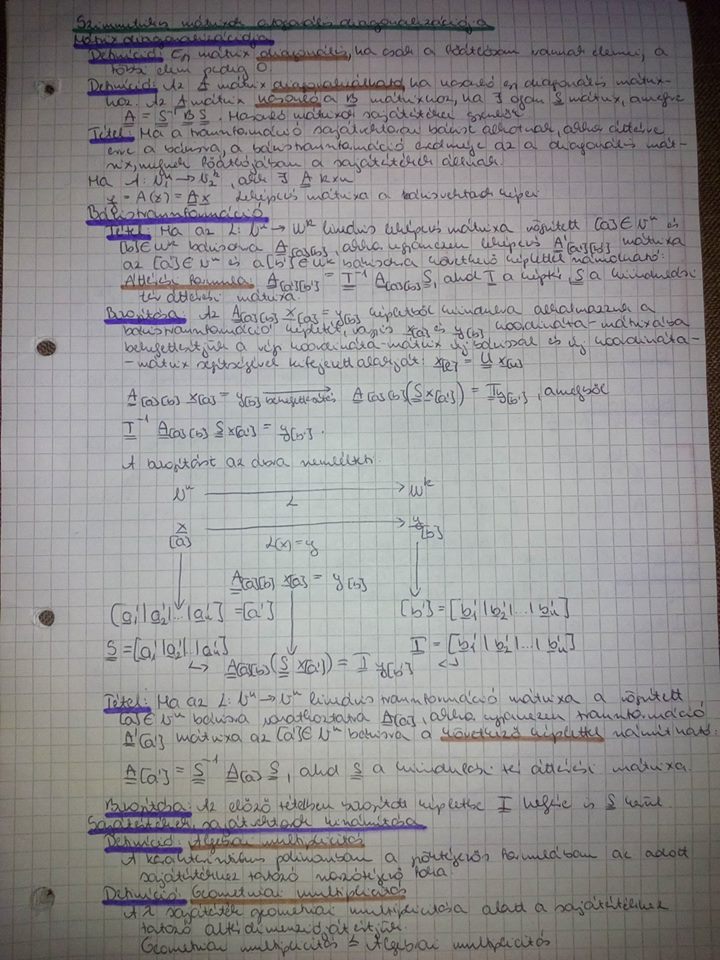 Szimmetrikus mátrixok ortogonális diagonalizációja
Mátrix diagonalizációja
Definíció: Egy mátrix diagonális, ha csak a főátlóban vannak elemei, a
többi elem pedig 0.
Definíció: Az A mátrix diagonalizálható, ha hasonló egy diagonális mátrix-
hoz. Az A mátrix hasonló a B mátrixhoz, ha ∃ olyan S mátrix, amelyre
A = S⁻¹ B S. Hasonló mátrixok sajátértékei
Tétel: Ha a transzformáció sajátvektorai bázist alkotnak, akkor áttérve
erre a bázisra, a bázistranszformáció eredménye az a diagonális mát-
rix, melynek főátlójában a sajátértékek állnak.
Ha A: V₁ⁿ → V₂ᵏ, akkor ∃ A kxn
y = A(x) = A x leképezés mátrixa a bázisvektorok képei
Bázistranszformáció
Tétel: Ha az L: Vⁿ → Wᵏ lineáris leképezés mátrixa rögzített [a] ∈ Vⁿ és
[b] ∈ Wᵏ bázisokra A[a][b], akkor ugyanezen leképezés A'[a'][b'] mátrixa
az [a'] ∈ Vⁿ és a [b'] ∈ Wᵏ bázisokra következő képlettel számolható:
Áttérési formula: A[a'][b'] = T⁻¹ A[a][b] S, ahol T a képtér, S a kiindulási
tér áttérési mátrixa.
Bizonyítása: Az A[a][b] x[a] = y[b] képletből kiindulva alkalmazzuk a
bázistranszformáció képletét, vagyis x[a] és y[b] koordináta-mátrixába
behelyettesítjük a régi koordináta-mátrix új bázissal és új koordináta-
-mátrix segítségével kifejezett alakját: x[e] = U x[u]
A[a][b] x[a] = y[b] behelyettesítés A[a][b] (S x[a']) = T y[b'], amelyből
T⁻¹ A[a][b] S x[a'] = y[b'].
A bizonyítást az ábra szemlélteti.
Vⁿ L Wᵏ
x [a] L(x) = y y [b]
A[a][b] x[a] = y[b]
[a₁' | a₂' | ... | aₙ'] = [a'] [b'] = [b₁' | b₂' | ... | bₙ']
S = [a₁' | a₂' | aₙ'] T = [b₁' | b₂' | ... | bₙ']
A[a][b] (S x[a']) = T y[b']
Tétel: Ha az L: Vⁿ → Vⁿ lineáris transzformáció mátrixa a rögzített
[a] ∈ Vⁿ bázisra vonatkoztatva A[a], akkor ugyanezen transzformáció
A'[a'] mátrixa az [a'] ∈ Vⁿ bázisra a következő képlettel számítható:
A[a'] = S⁻¹ A[a] S, ahol S a kiindulási tér áttérési mátrixa.
Bizonyítása: Az előző tételben bizonyított képletbe T helyére is S kerül
Sajátértékek, sajátvektorok kiszámítása
Definíció: Algebrai multiplicitás
A karakterisztikus polinomban a gyöktényezős formulában az adott
sajátértékhez tartozó hatványkitevő foka
Definíció: Geometriai multiplicitás
A λ sajátérték geometriai multiplicitása alatt a sajátértékhez
tartozó altér dimenzióját értjük.
Geometriai multiplicitás ≤ Algebrai multiplicitás